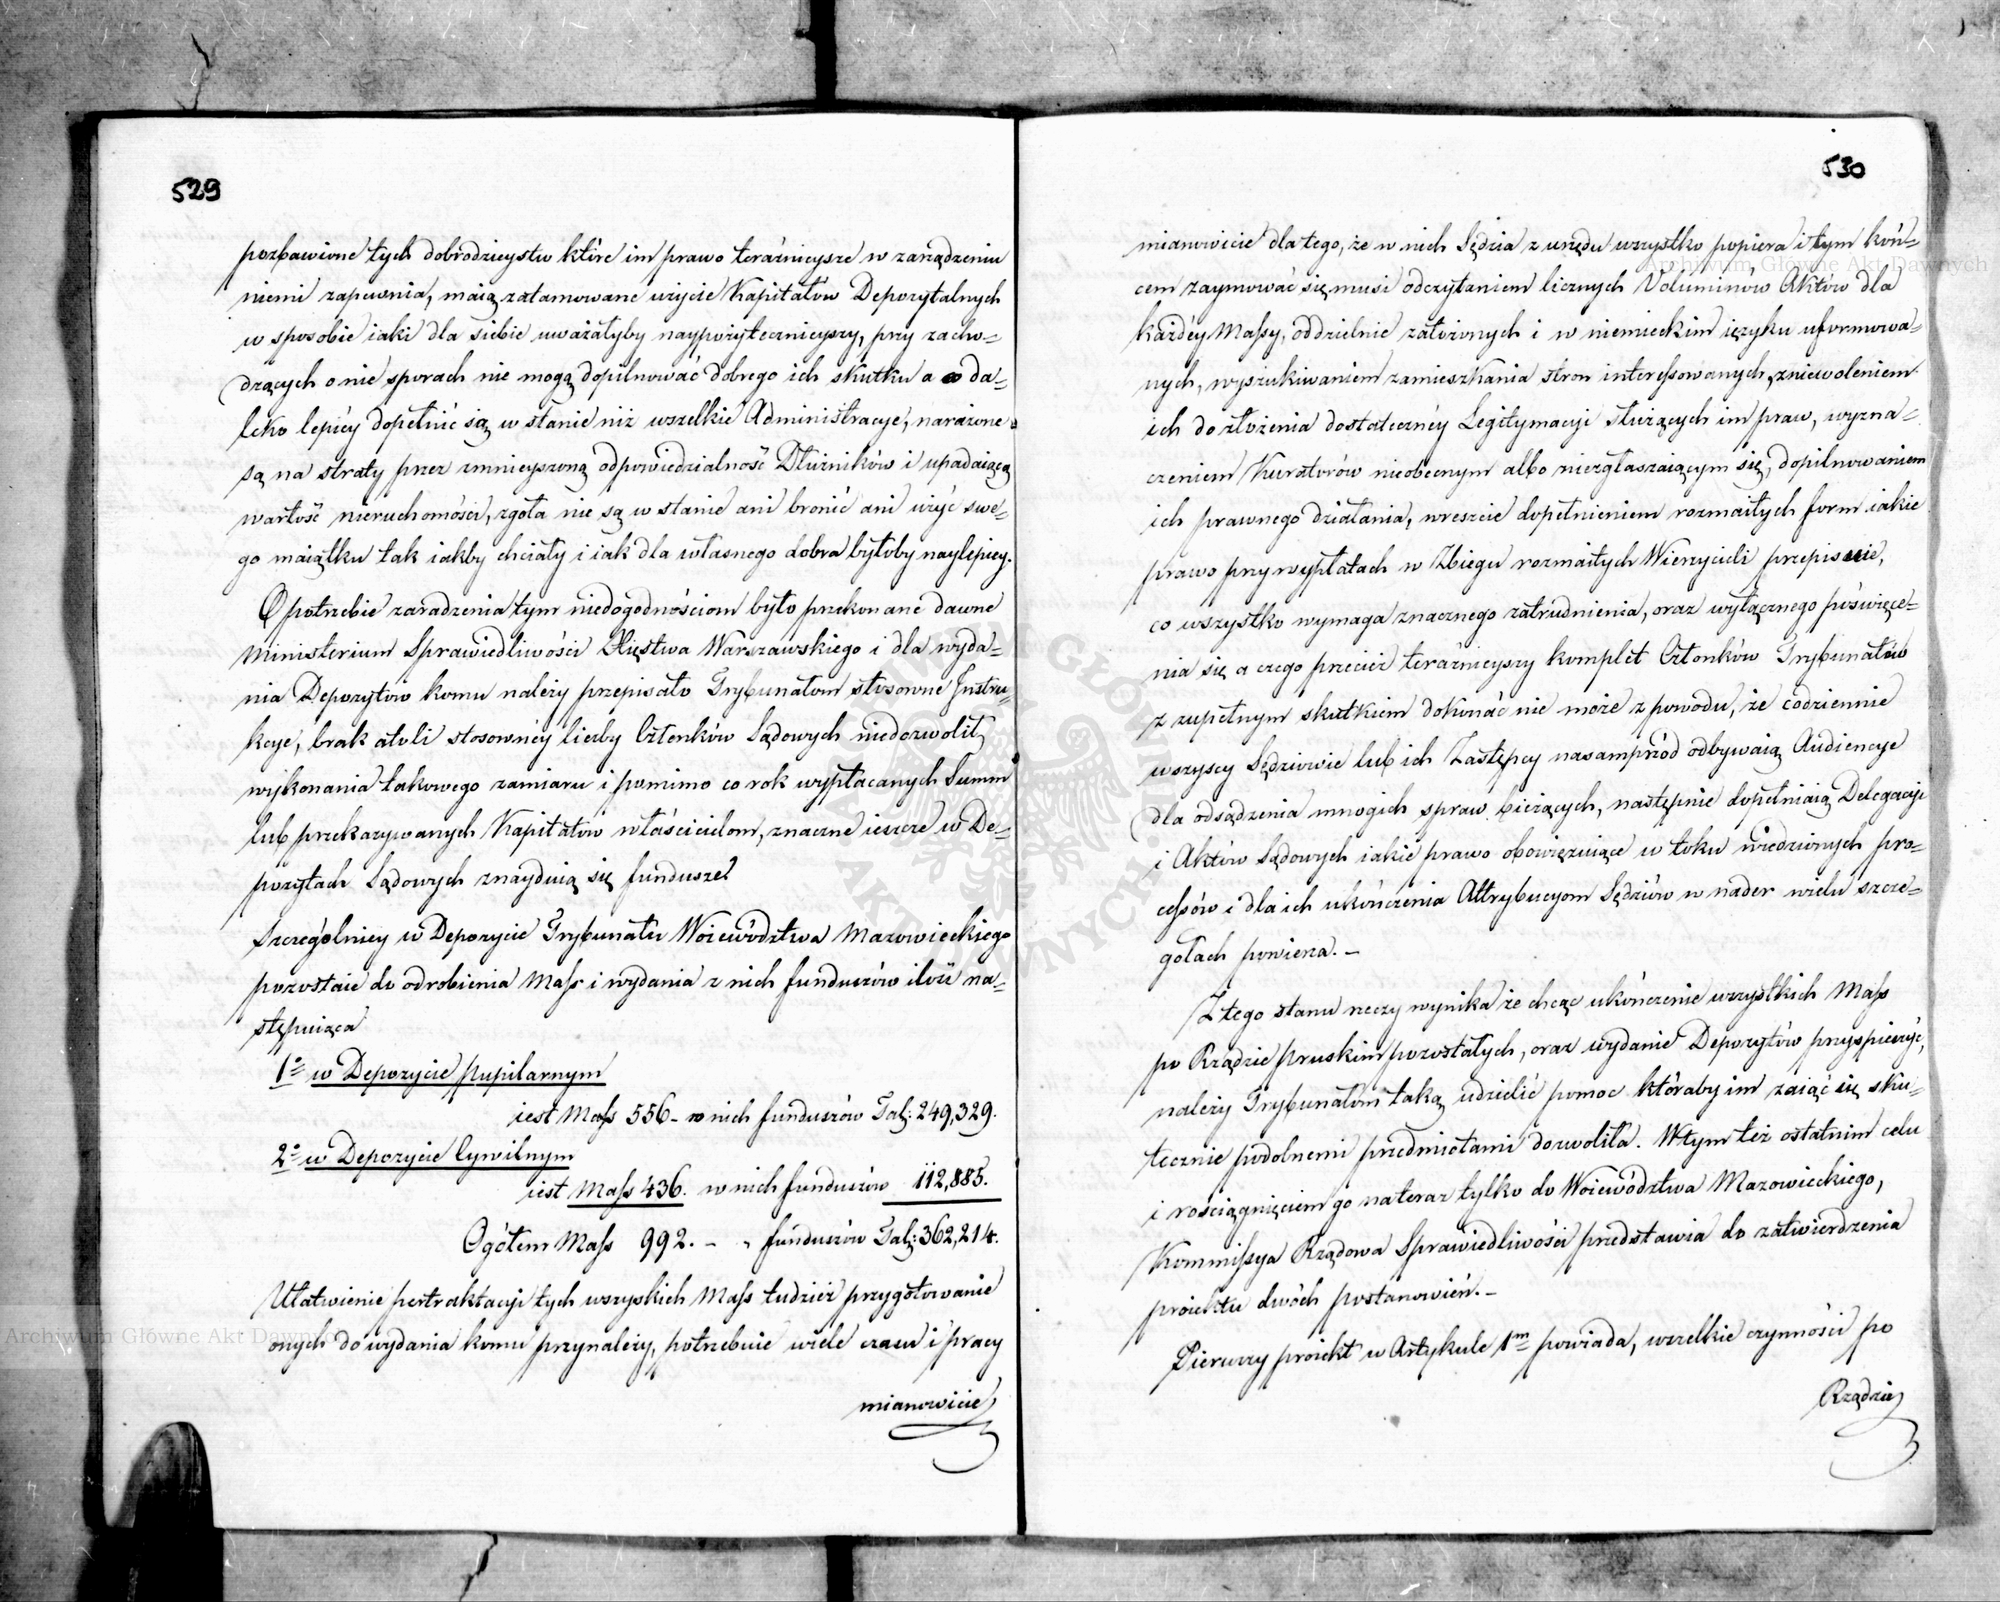 529
pozbawione tych dobrodzieystw które im prawo teraźnieysze w zarządzeniu
niemi zapewnia, maią zatamowane użycie Kapitałów Depozytalnych
w sposobie iaki dla siebie uważałyby naypożytecznieyszy, przy zacho-
dzących o nie sporach nie mogą dopilnować dobrego ich skutku a co da-
leko lepiéy dopełnić są w stanie niż wszelkie Administracye, narażone
są na straty przez zmnieyszoną odpowiedzialność Dłużników i upadaiącą
wartość nieruchomości, zgoła nie są w stanie ani bronić ani użyć swe-
go maiątku tak iakby chciały i iak dla własnego dobra byłoby naylepiey.
O potrzebie zaradzenia tym niedogodnościom było przekonane dawne
Ministerium Sprawiedliwości Xięstwa Warszawskiego i dla wyda-
nia Depozytów komu należy przepisało Trybunałom stosowne Instru-
kcye, brak atoli stosownéy liczby Członków Sądowych niedozwolił
wykonania takowego zamiaru i pomimo co rok wypłacanych Summ
lub przekazywanych Kapitałów właścicielom, znaczne ieszcze w De-
pozytach Sądowych znayduią się fundusze.
Szczególniey w Depozycie Trybunału Woiewództwa Mazowieckiego
pozostaie do odrobienia Mass i wydania z nich funduszów ilość na-
stępuiąca
1º w Depozycie pupilarnym
iest Mass 556 - w nich funduszów Tal: 249,329.
2º w Depozycie Cywilnym
iest Mass 436. w nich funduszów 112,885.
Ogółem Mass 992. - „ funduszów Tal: 362,214.
Ułatwienie pertraktacyi tych wszyskich Mass tudzież przygotowanie
onych do wydania komu przynależy, potrzebuie wiele czasu i pracy
mianowicie
530
mianowicie dla tego, że w nich Sędzia z urzędu wszystko popiera i tym koń-
cem zaymować się musi odczytaniem licznych Voluminów Aktów dla
każdéy Massy, oddzielnie założonych i w niemieckim ięzyku uformowa-
nych, wyszukiwaniem zamieszkania stron interessowanych, zniewoleniem
ich do złożenia dostatecznéy Legitymacyi służących im praw, wyzna-
czeniem Kuratorów nieobecnym albo niezgłaszaiącym się, dopilnowaniem
ich prawnego działania, wreszcie dopełnieniem rozmaitych form iakie
prawo przy wypłatach w Zbiegu rozmaitych Wierzycieli przepisuie,
co wszystko wymaga znacznego zatrudnienia, oraz wyłącznego poświęce-
nia się a czego przecież teraźnieyszy komplet Członków Trybunałów
z zupełnym skutkiem dokonać nie może z powodu, że codziennie
wszyscy Sędziowie lub ich Zastępcy nasamprzód odbywaią Audiencye
dla odsądzenia mnogich spraw bieżących, następnie dopełniaią Delegacyi
i Aktów Sądowych iakie prawo obowięzuiące w toku wiedzionych pro-
cessów i dla ich ukończenia Attrybucyom Sędziów w nader wielu szcze-
gółach powierza. -
Z tego stanu rzeczy wynika że chcąc ukończenie wszystkich Mass
po Rządzie pruskim pozostałych, oraz wydanie Depozytów przyspieszyć,
należy Trybunałom taką udzielić pomoc któraby im zaiąć się sku-
tecznie podobnemi przedmiotami dozwoliła. W tym też ostatnim celu
i rościągnięciem go nateraz tylko do Woiewództwa Mazowieckiego,
Kommissya Rządowa Sprawiedliwości przedstawia do zatwierdzenia
proiektu dwóch postanowień. -
Pierwszy proiekt w Artykule 1m powiada, wszelkie czynności po
Rządzie
Archiwum Główne Akt Dawnych
Archiwum Główne Akt Dawnych